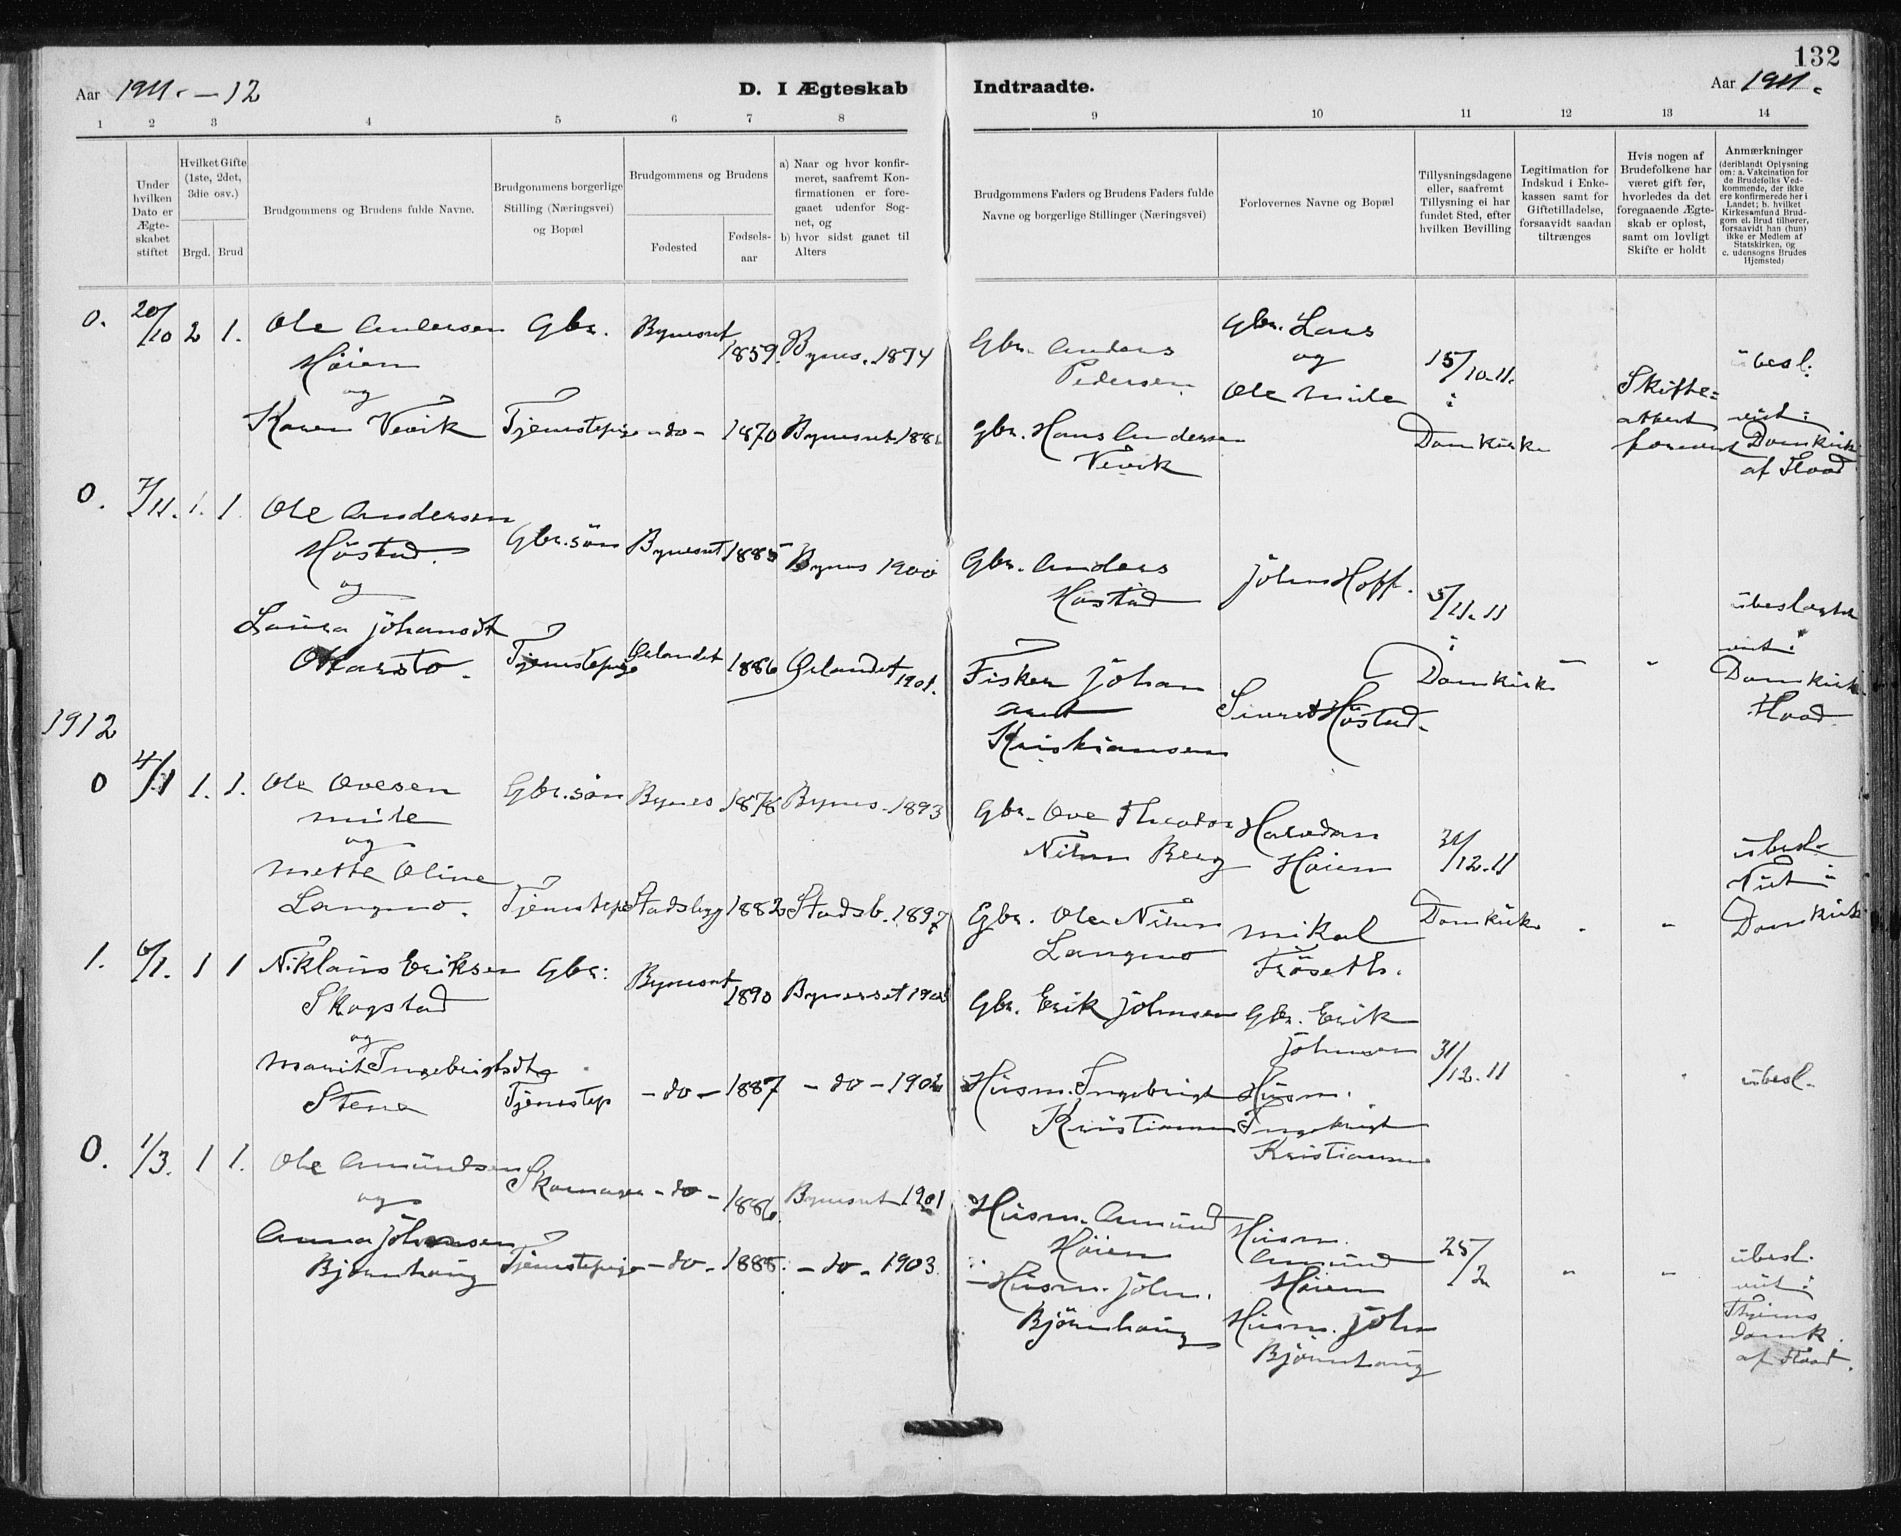 132
Aar 1911. - 12
D. I Ægteskab
Indtraadte.
Aar 1911.
1 2 3 4 5 6 7 8
9 10 11 12 13 14
Under hvilken Dato er Ægte-skabet stiftet
Hvilket Gifte (1ste, 2det, 3die osv.)
Brgd. Brud
Brudgommens og Brudens fulde Navne.
Brudgommens borgerlige Stilling (Næringsvei) og Bopæl
Brudgommens og Brudens
Fødested
Fødsels-aar
a) Naar og hvor konfir-meret, saafremt Kon-firmationen er fore-gaaet udenfor Sog-net, og
b) hvor sidst gaaet til Alters
Brudgommens Faders og Brudens Faders fulde
Navne og borgerlige Stillinger (Næringsvei)
Forlovernes Navne og Bopæl
Tillysningsdagene eller, saafremt Tillysning ei har fundet Sted, efter hvilken Bevilling
Legitimation for Indskud i Enke-kassen samt for Giftetilladelse, forsaavidt saadan tiltrænges
Hvis nogen af Brudefolkene har været gift før, hvorledes da det foregaaende Ægte-skab er opløst, samt om lovligt Skifte er holdt
Anmærkninger
(deriblandt Oplysning om: a. Vakcination for de Brudefolks Ved-kommende, der ikke ere konfirmerede her i Landet; b. hvilket Kirkesamfund Brud-gom el. Brud tilhører, forsaavidt han (hun) ikke er Medlem af Statskirken, og c. udensogns Brudes Hjemsted)
0. 20/10 2 1. Ole Andersen
Høien
og
Karen Vevik
Gbr. Bynesset 1859. Bynes. 1874
Tjenestepige - do - 1870 Bynesset
Gbr. Anders
Pedersen
Gbr. Hans Andersen
Vevik
Gbr. Lars
og
Ole Mule
15/10.11.
i
Domkirke
Skifte=
attest
forevist
ubesl:
viet i
Domkirke
af Hoad
0. 7/11. 1. 1 Ole Andersen
Høstad
og
Laura Johansdt
Gbr. søn Bynesset 1885 Bynes 1900
Tjenestepige Ørlandet 1886 Ørlandet 1901.
Gbr. Anders
Høstad
Fisker Johan
Kristiansen
John Hoff.
Sivert Høstad.
5/11.11
i
Domkirke
" "
viet i
Domkirke
Hoad
1912
0 4/1 1. 1. Ole Ovesen
Mule
og
Mette Oline
Langmo.
Gbr. søn Bynes 1878 Bynes. 1893
Tjenestep Stadsbygd 1882 Stadsb. 1897
Gbr. Ove Theodor
Nilsen Berg
Gbr. Ole Nilsen
Langmo
Halvdan
Høien
Mikal
Frøseth.
31/12.11
Domkirke
" "
ubesl.
Viet i
Domkirke
1. 6/1. 1 1 Niklaus Eriksen
Skogstad
og
Marit Ingebrigtsdt
Stene
Gbr: Bynesset 1890 Bynesset
Tjenestep - do - 1887 - do - 1902
Gbr. Erik Johnsen
Husm. Ingebrigt
Kristiansen
Gbr. Erik
Johnsen
Husm.
Ingebrigt
Kristiansen
31/12.11
" "
ubesl.
0. 1/3. 1 1. Ole Amundsen
og
Anna Johnsen
Bjørnhaug
Skomager - do - 1886. Bynesset 1901
Tjenestepige - do - 1885. - do - 1903.
Husm. Amund
Høien
Husm. John.
Bjørnhaug
Husm.
Amund
Høien
Husm. John
Bjørnhaug
25/2
" "
ubesl.
viet i
Domk.
af Hoad.